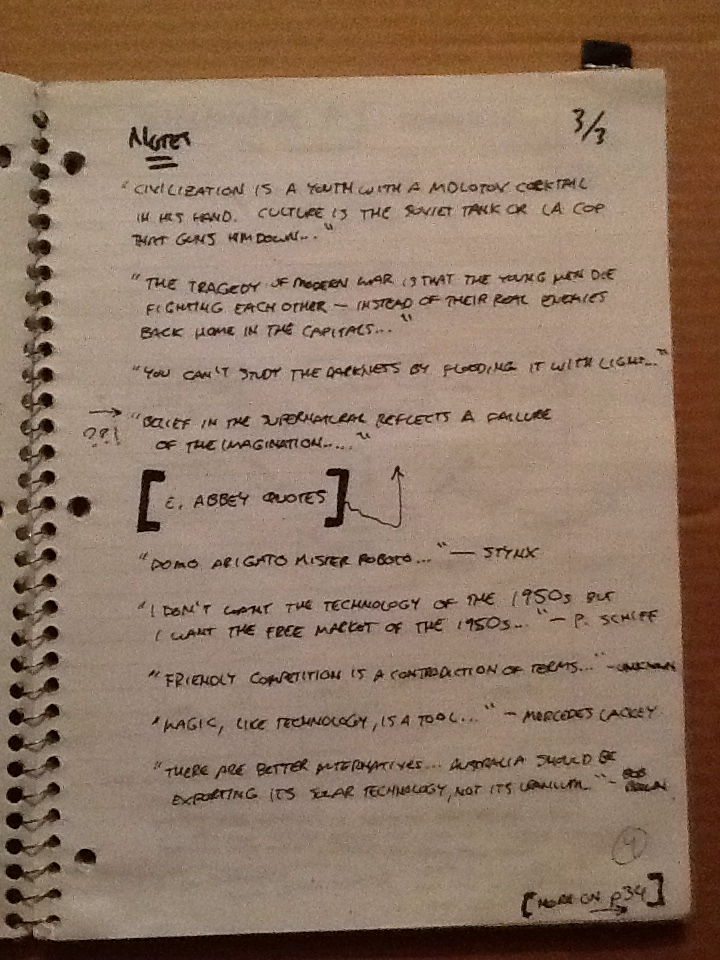 NOTES
3/3
"CIVILIZATION IS A YOUTH WITH A MOLOTOV COCKTAIL
IN HIS HAND. CULTURE IS THE SOVIET TANK OR LA COP
THAT GUNS HIM DOWN..."
"THE TRAGEDY OF MODERN WAR IS THAT THE YOUNG MEN DIE
FIGHTING EACH OTHER — INSTEAD OF THEIR REAL ENEMIES
BACK HOME IN THE CAPITALS..."
"YOU CAN'T STUDY THE DARKNESS BY FLOODING IT WITH LIGHT..."
→ "BELIEF IN THE SUPERNATURAL REFLECTS A FAILURE
??! OF THE IMAGINATION....."
[E. ABBEY QUOTES]
"DOMO ARIGATO MISTER ROBOTO..." — STYNX
"I DON'T WANT THE TECHNOLOGY OF THE 1950s BUT
I WANT THE FREE MARKET OF THE 1950s..." — P. SCHIFF
"FRIENDLY COMPETITION IS A CONTRADICTION OF TERMS..." — UNKNOWN
"MAGIC, LIKE TECHNOLOGY, IS A TOOL..." — MERCEDES LACKEY
"THERE ARE BETTER ALTERNATIVES... AUSTRALIA SHOULD BE
EXPORTING ITS SOLAR TECHNOLOGY, NOT ITS URANIUM." — BOB BROWN
4
[MORE ON p34]